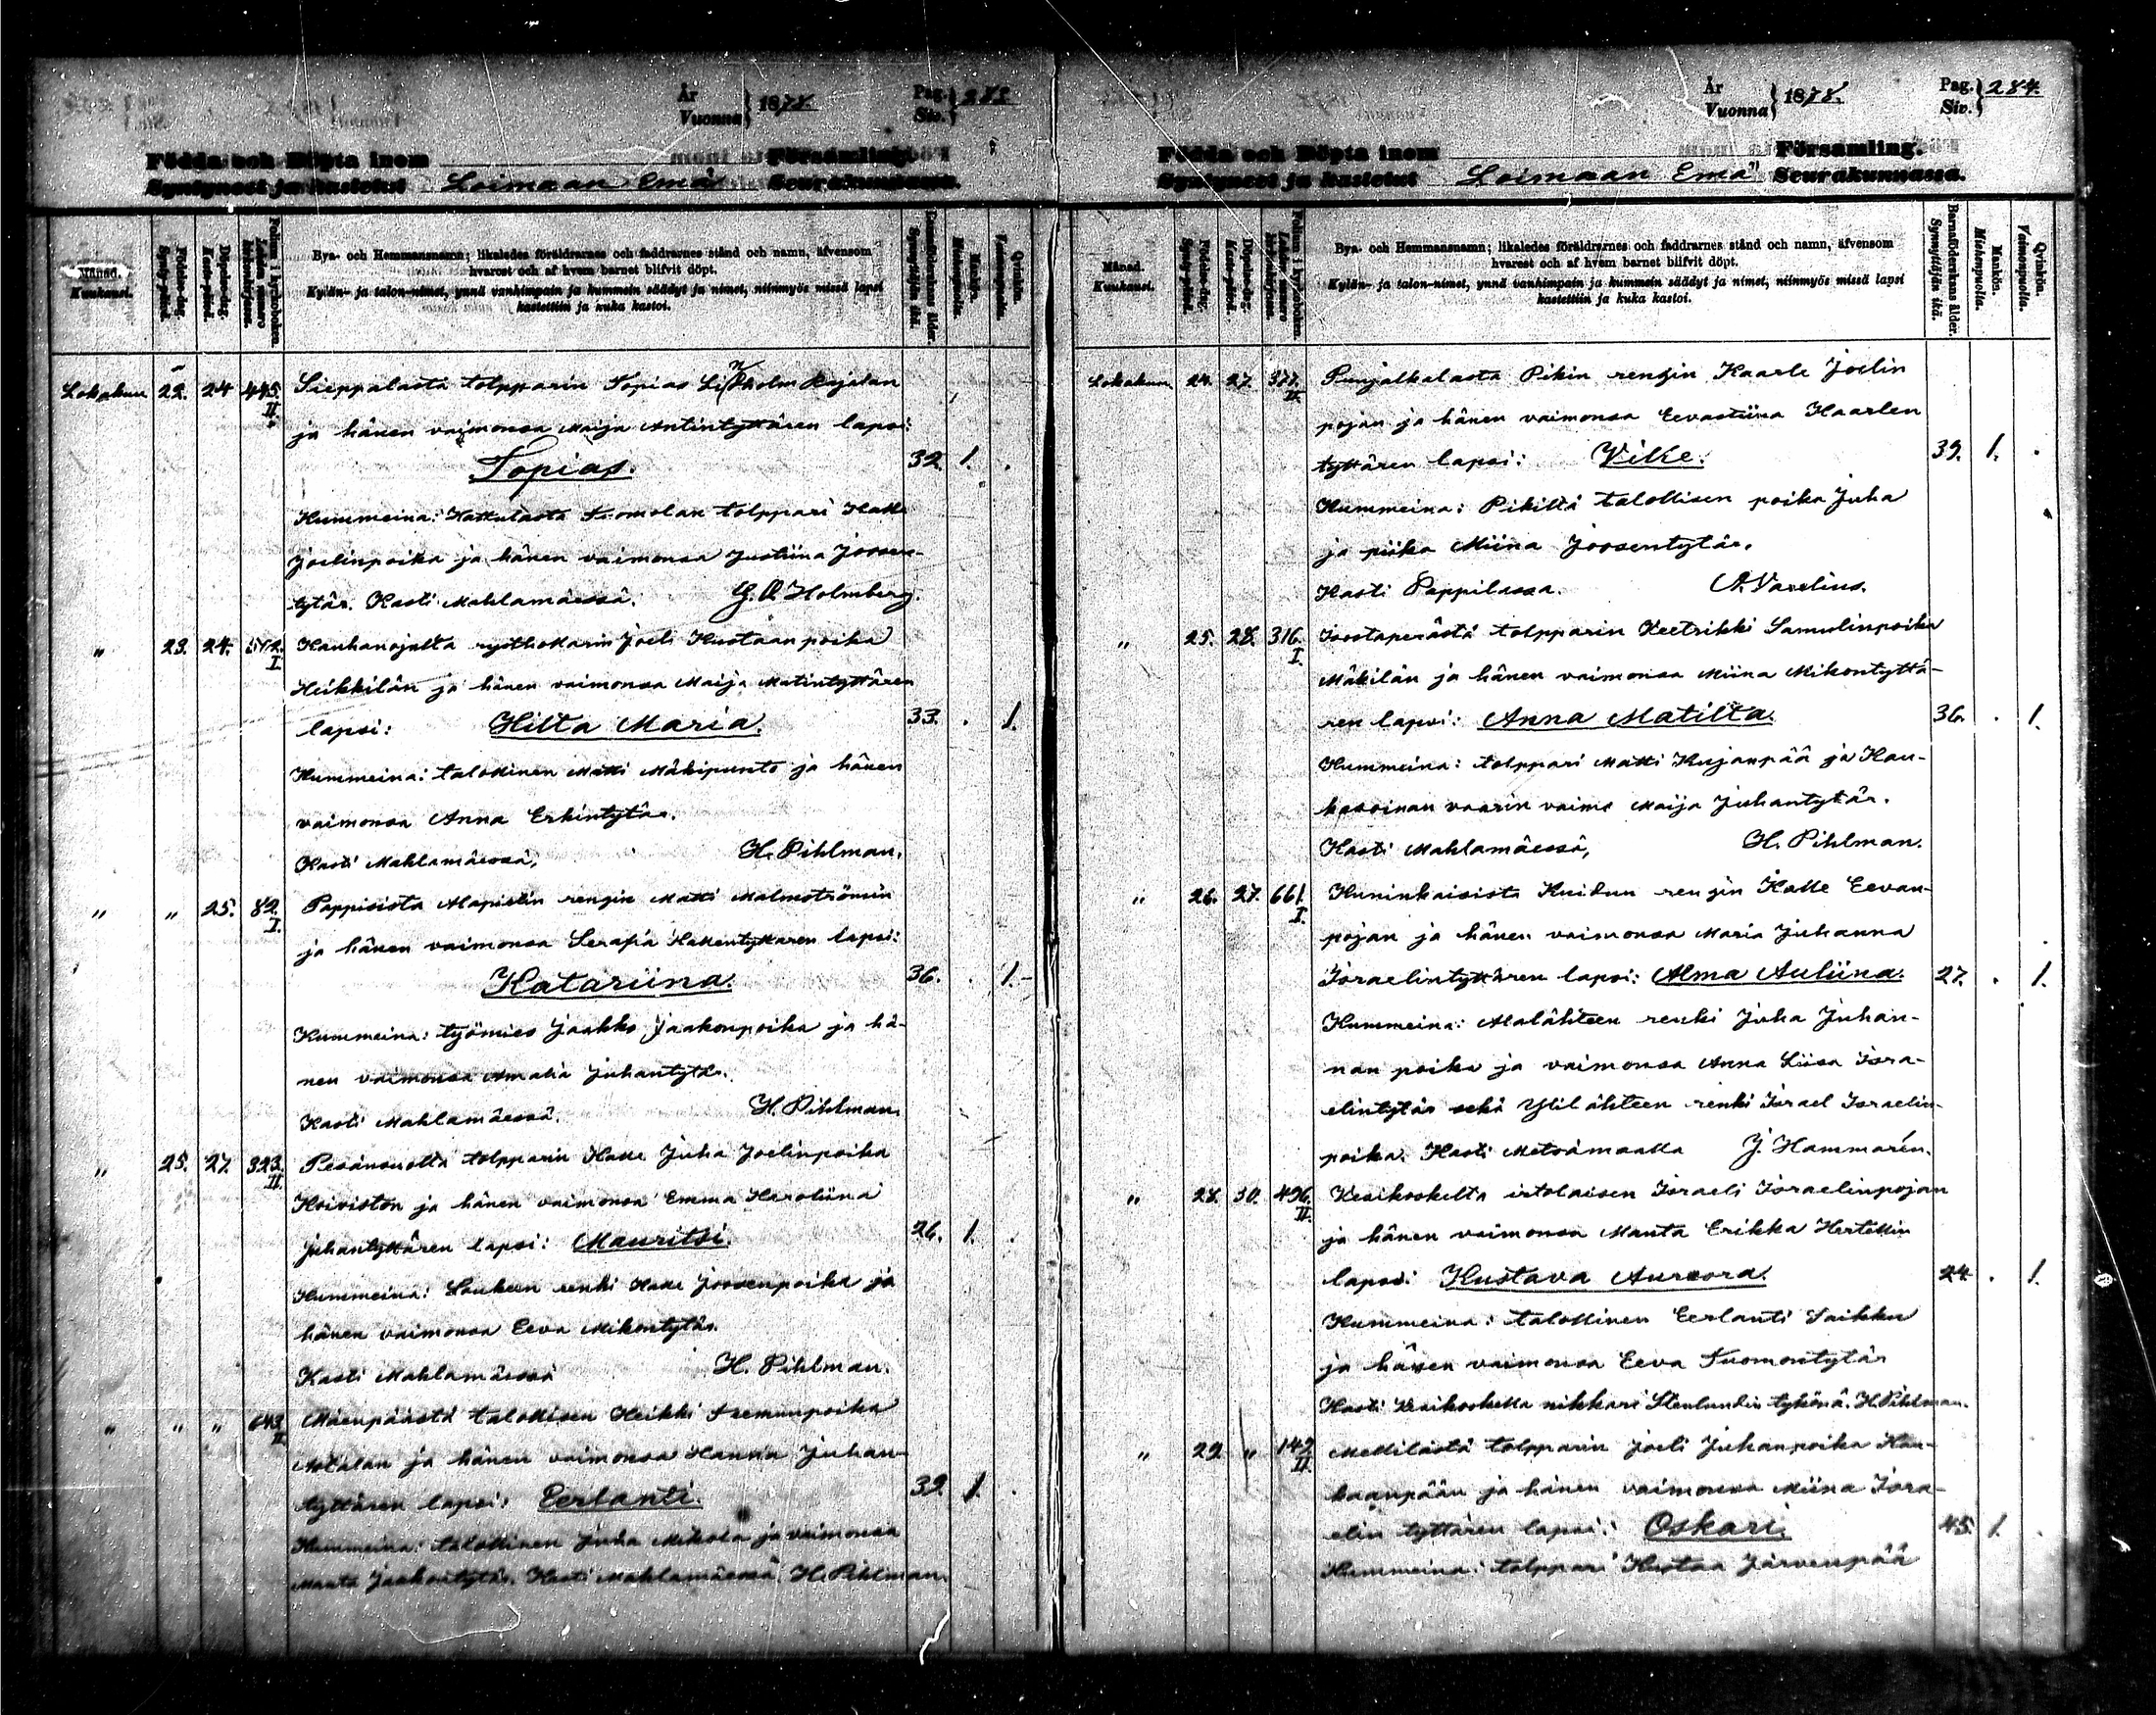 År
Vuonna } 1878.
Pag.
Siv. } 283
Födda och Döpta inom Församling.
Syntyneet ja kastetut Loimaan Emä Seurakunnassa.
Månad.
Kuukausi.
Födelse-dag.
Synty-päivä.
Döpelse-dag.
Kaste-päivä.
Folium i kyrkoboken.
Bya- och Hemmansnamn; likaledes föräldrarnes och faddrarnes stånd och namn, äfvensom
hvarest och af hvem barnet blifvit döpt.
Kylän- ja talon-nimet, ynnä vanhimpain ja kummein säädyt ja nimet, niinmyös missä lapsi
kastettiin ja kuka kastoi.
Barnaföderskans ålder.
Synnyttäjän ikä.
Mankön.
Miehenpuolta.
Qvinkön.
Vaimonpuolta.
Lokakuu 22. 24 445. II. Sieppalasta tolpparin Topias Lindholm Rajalan
ja hänen vaimonsa Maija Antintyttären lapsi:
Topias. 32 1.
Kummeina: Tuomolan tolppari Kalle
Joelinpoika ja hänen vaimonsa Justiina Joosen-
tytär. Kasti Mahlamäessä. G. A. Holmberg.
" 23. 24. 542. I. Kauhanojalta ryöthollarin Joeli Kustaan poika
Heikkilän ja hänen vaimonsa Maija Matintyttären
lapsi: Hilta Maria. 33. 1.
Kummeina: talollinen Matti Mäkipunto ja hänen
vaimonsa Anna Erkintytär.
Kasti Mahlamäessä, H. Pihlman.
" " 25. 82. I. Pappisista Alapistin rengin Matti Malmströmin
ja hänen vaimonsa Serafia Kallentyttären lapsi:
Katariina. 36. 1.
Kummeina: työmies Jaakko Jaakonpoika ja hä-
nen vaimonsa Amalia Juhantytär.
Kasti Mahlamäessä. H. Pihlman.
" 25. 27. 323. II. Pesänsuolta tolpparin Kalle Juha Joelinpoika
Koiviston ja hänen vaimonsa Emma Karoliina
Juhantyttären lapsi: Mauritsi. 26. 1.
Kummeina: Saukeen renki Kalle Joosenpoika ja
hänen vaimonsa Eeva Mikontytär.
Kasti Mahlamäessä H. Pihlman.
" " " 643 II. Mäenpäästä talollisen Heikki Tuomunpoika
Astalan ja hänen vaimonsa Hanna Juhan-
tyttären lapsi: Eerlanti. 39. 1.
Kummeina: talollinen Juha Mikola ja vaimonsa
Manta Jaakontytär. Kasti Mahlamäessä. H. Pihlman.
År
Vuonna } 1878.
Pag.
Siv. } 284.
Födda och Döpta inom Församling.
Syntyneet ja kastetut Loimaan Emä Seurakunnassa.
Månad.
Kuukausi.
Födelse-dag.
Synty-päivä.
Döpelse-dag.
Kaste-päivä.
Folium i kyrkoboken.
Bya- och Hemmansnamn; likaledes föräldrarnes och faddrarnes stånd och namn, äfvensom
hvarest och af hvem barnet blifvit döpt.
Kylän- ja talon-nimet, ynnä vanhimpain ja kummein säädyt ja nimet, niinmyös missä lapsi
kastettiin ja kuka kastoi.
Barnaföderskans ålder.
Synnyttäjän ikä.
Mankön.
Miehenpuolta.
Qvinkön.
Vaimonpuolta.
Lokakuu 24. 27. 377. II. Purjalkalasta Pikin rengin Kaarle Joelin
pojan ja hänen vaimonsa Eevastiina Kaarlen
tyttären lapsi: Vilke. 39. 1.
Kummeina: Pikiltä talollisen poika Juha
ja piika Miina Joosentytär.
Kasti Pappilassa. A. Varelius.
" 25. 28. 316. I. Joostaperästä tolpparin Keetrikki Samulinpoika
Mäkilän ja hänen vaimonsa Miina Mikontyttä-
ren lapsi: Anna Matilta. 36. 1.
Kummeina: tolppari Matti Kujanpää ja Kau-
kasoinan vaarin vaimo Maija Juhantytär.
Kasti Mahlamäessä, H. Pihlman.
" 26. 27. 661. I. Kuninkaisista Knidun rengin Kalle Eevan-
pojan ja hänen vaimonsa Maria Juhanna
Israelintyttären lapsi: Alma Auliina. 27. 1.
Kummeina: Alalähteen renki Juha Juhan-
nan poika ja vaimonsa Anna Liisa Isra-
elintytär sekä Ylilähteen renki Israel Israelin-
poika. Kasti Metsämaalla J. Hammarén.
" 28. 30. 496. II. Kesikoskelta irtolaisen Israeli Israelinpojan
ja hänen vaimonsa Manta Erikka Hertellin
lapsi: Kustava Aurora. 24. 1.
Kummeina: talollinen Eerlanti Saikku
ja hänen vaimonsa Eeva Tuomontytär
Kasti Kesikoskella nikkari Stenlundin tykönä. H. Pihlman.
" 29. " 149 II. Mellilästä tolpparin Joeli Juhanpoika Kan-
kaanpään ja hänen vaimonsa Miina Isra-
elin tyttären lapsi: Oskari. 45. 1.
Kummeina: tolppari Kustaa Järvenpää